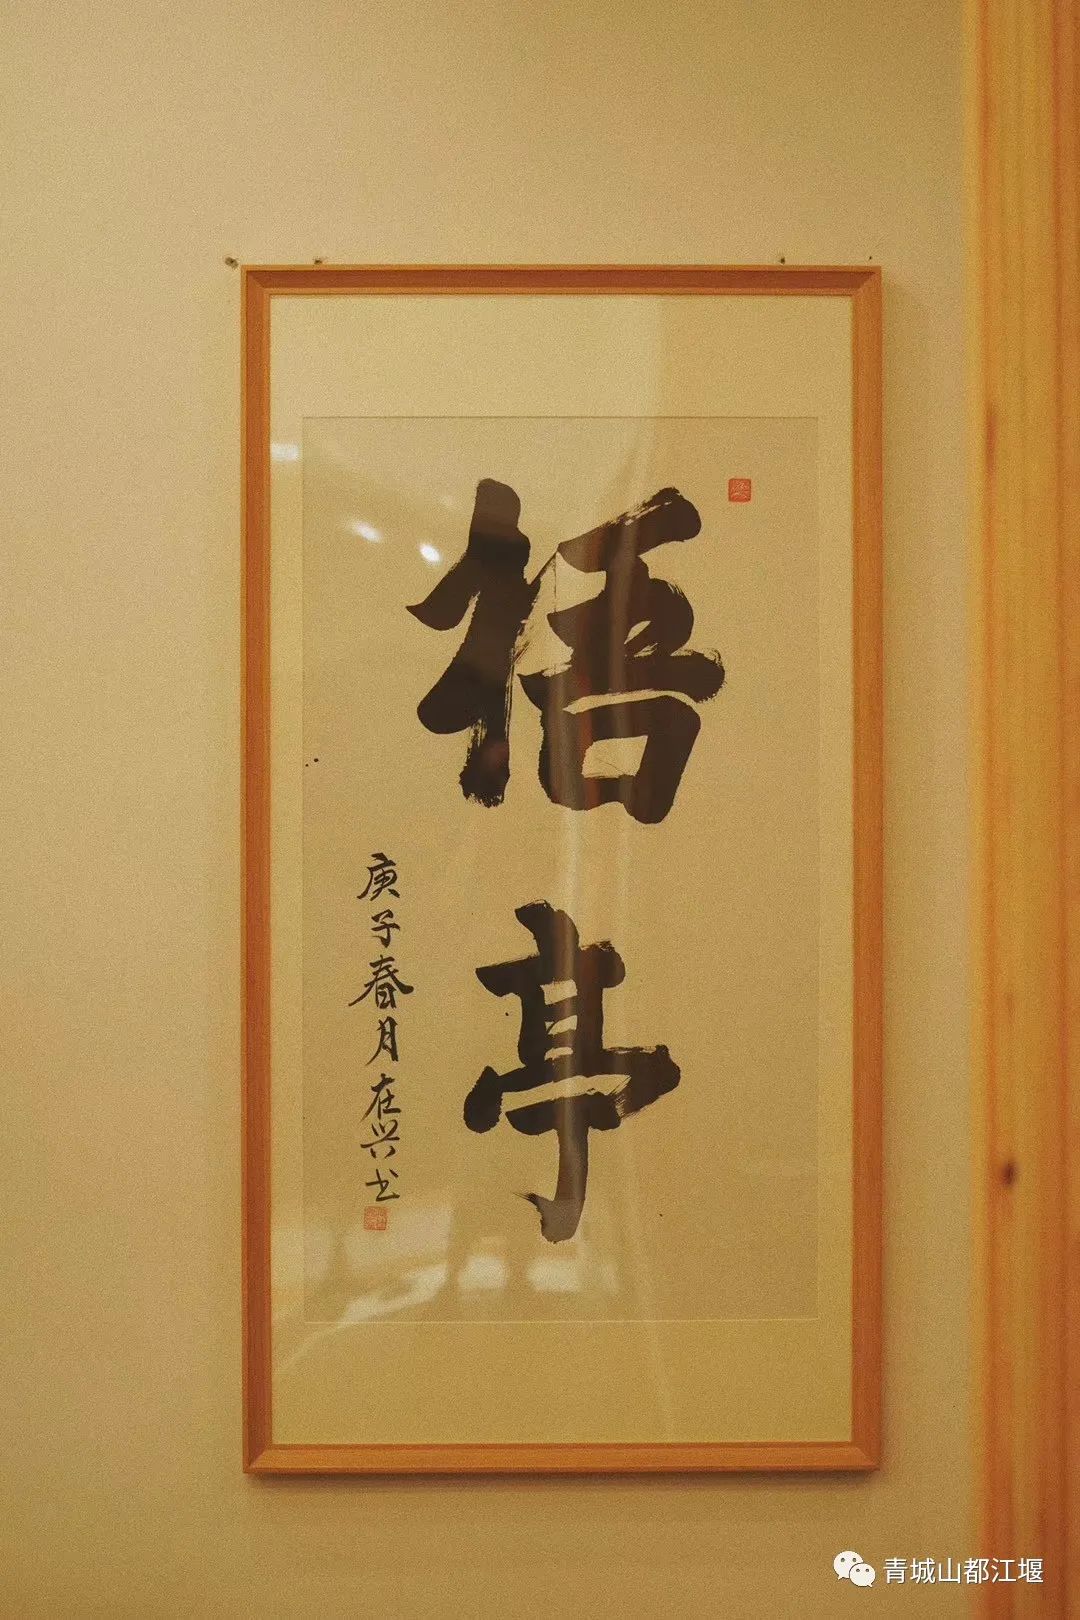 梧亭
庚子春月在兴书
青城山都江堰